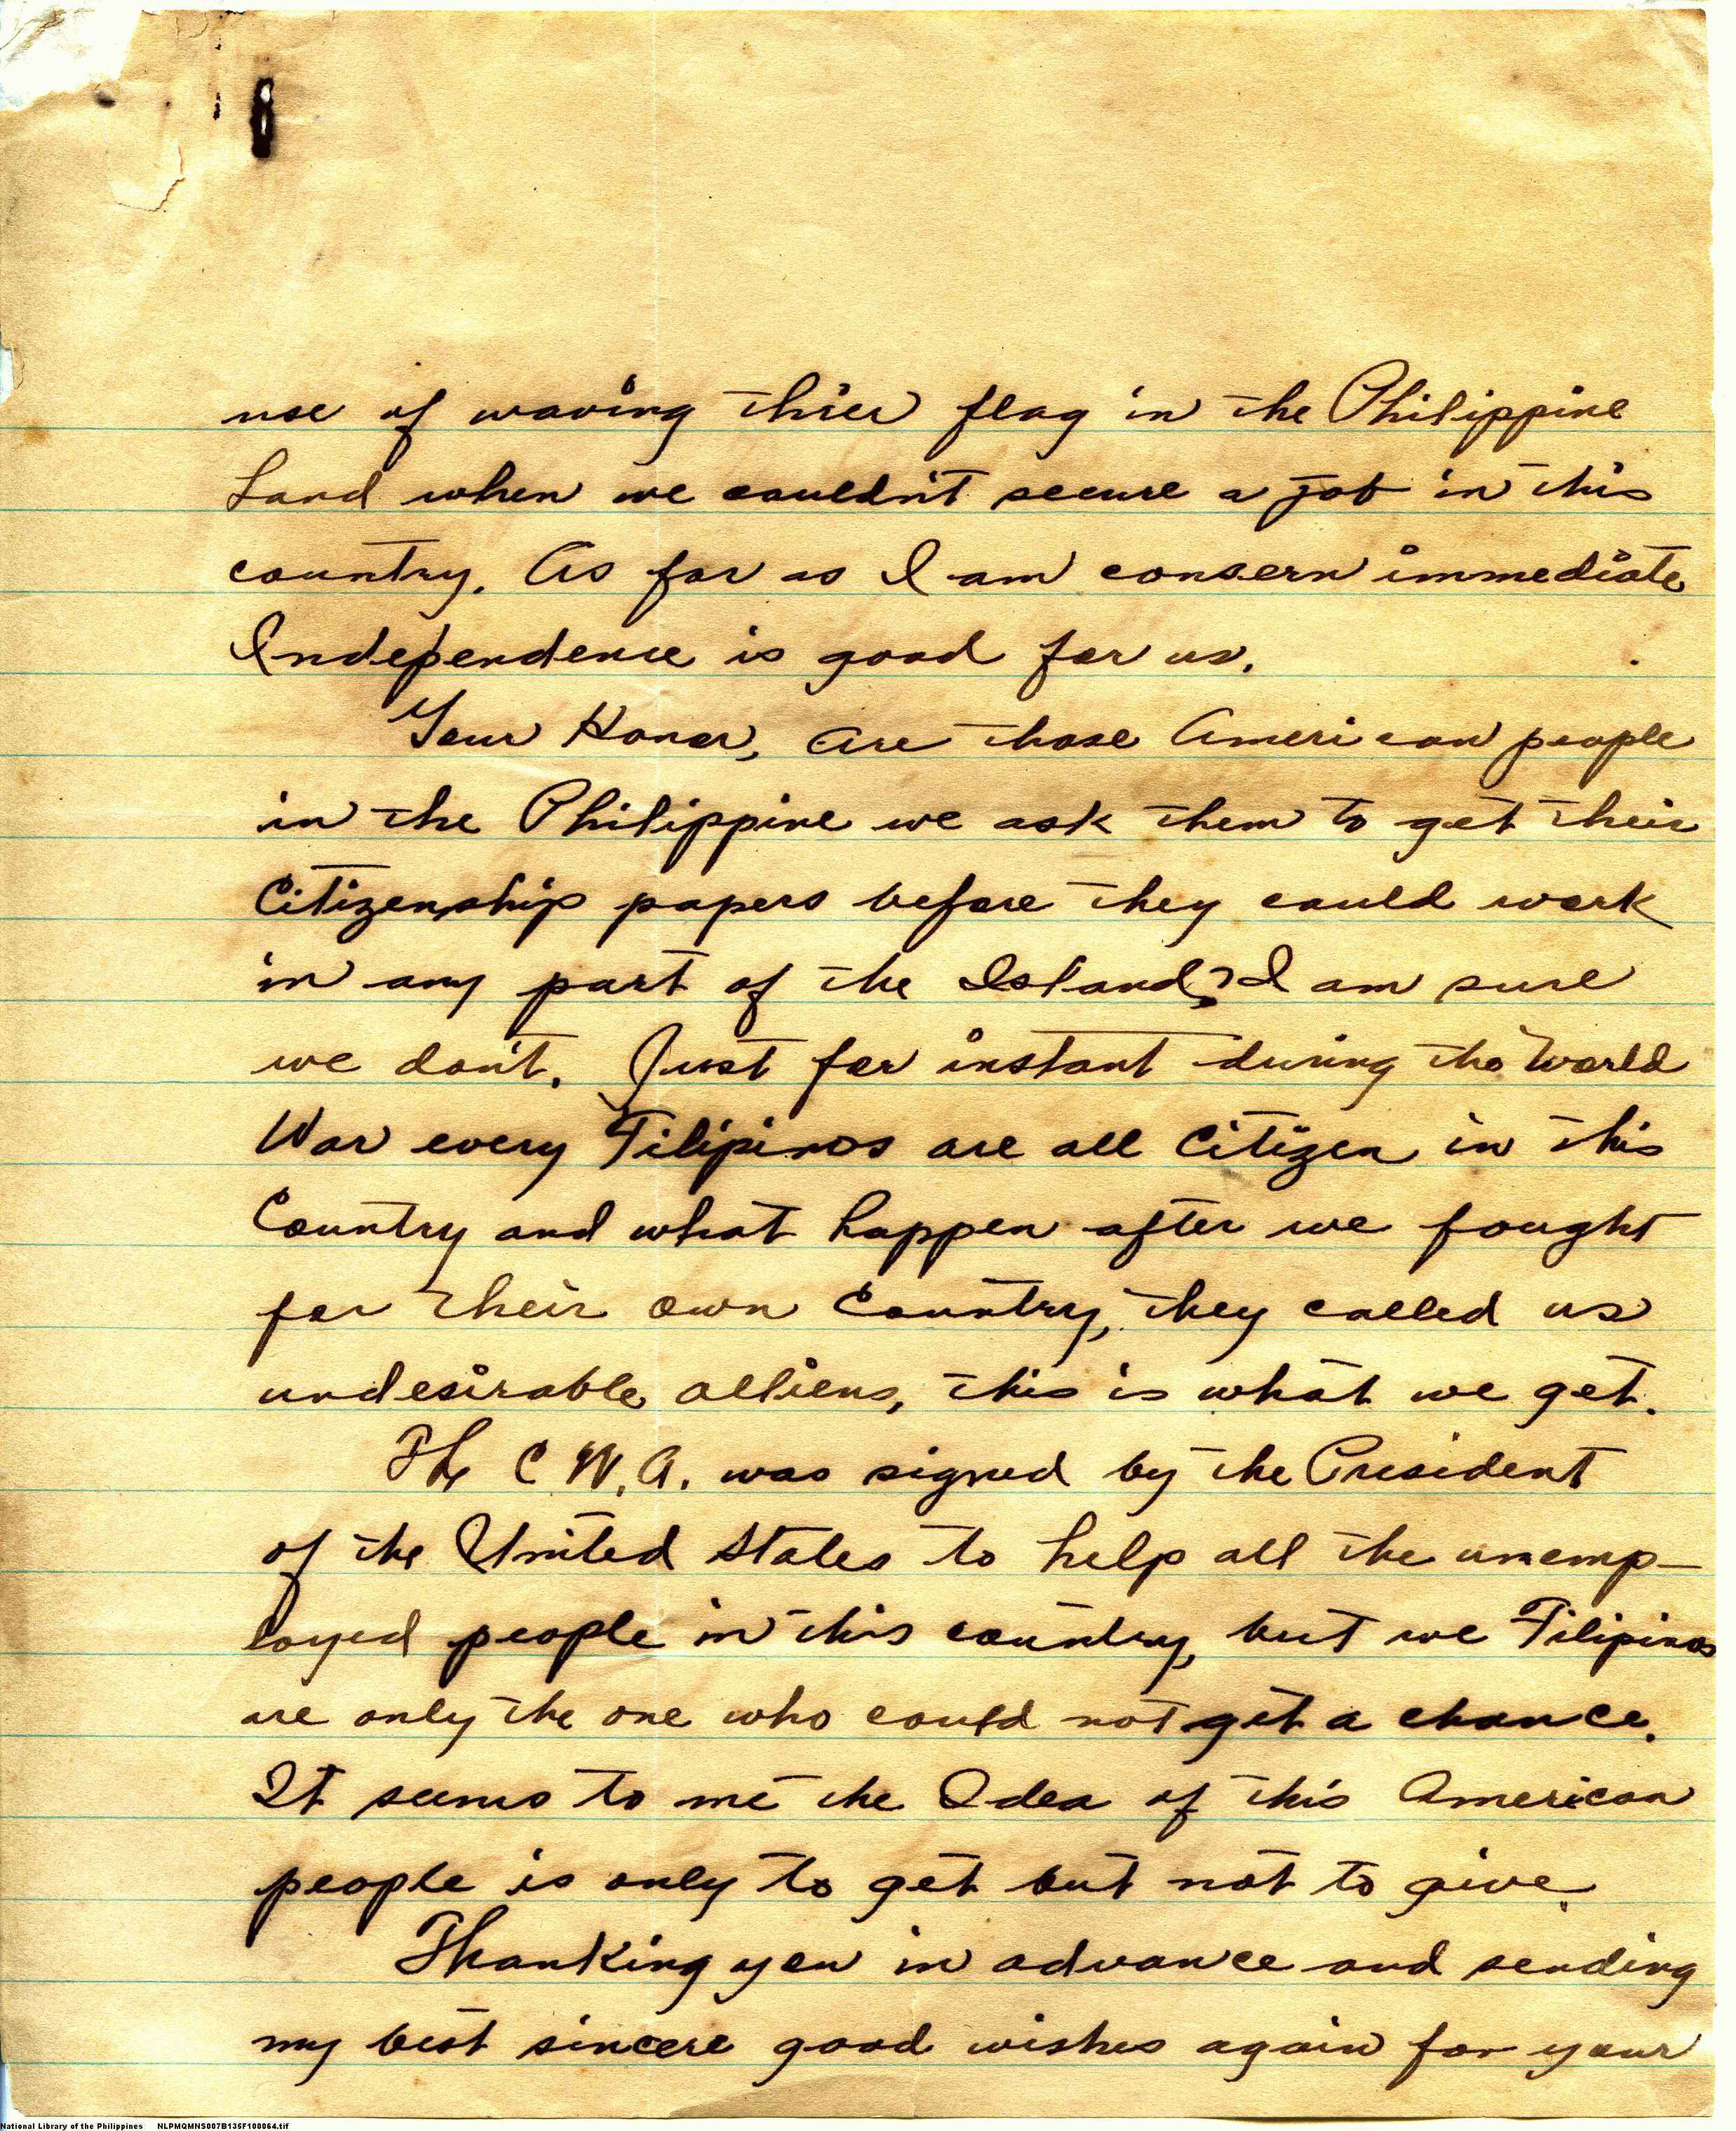 use of waving thier flag in the Philippine
Land when we couldn't secure a job in this
country. As far as I am consern immediate
Independence is good for us.
Your Honor, are those American people
in the Philippine we ask them to get their
Citizenship papers before they could work
in any part of the Island? I am sure
we don't. Just for instant during the World
War every Filipinos are all Citizen in this
Country and what happen after we fought
for their own Country, they called us
undesirable alliens, this is what we get.
The C W. A. was signed by the President
of the United States to help all the unemp-
loyed people in this country, but we Filipinos
are only the one who could not get a chance.
It seems to me the Idea of this American
people is only to get but not to give.
Thanking you in advance and sending
my best sincere good wishes again for your
National Library of the Philippines NLPMQMNS007B135F100064.tif